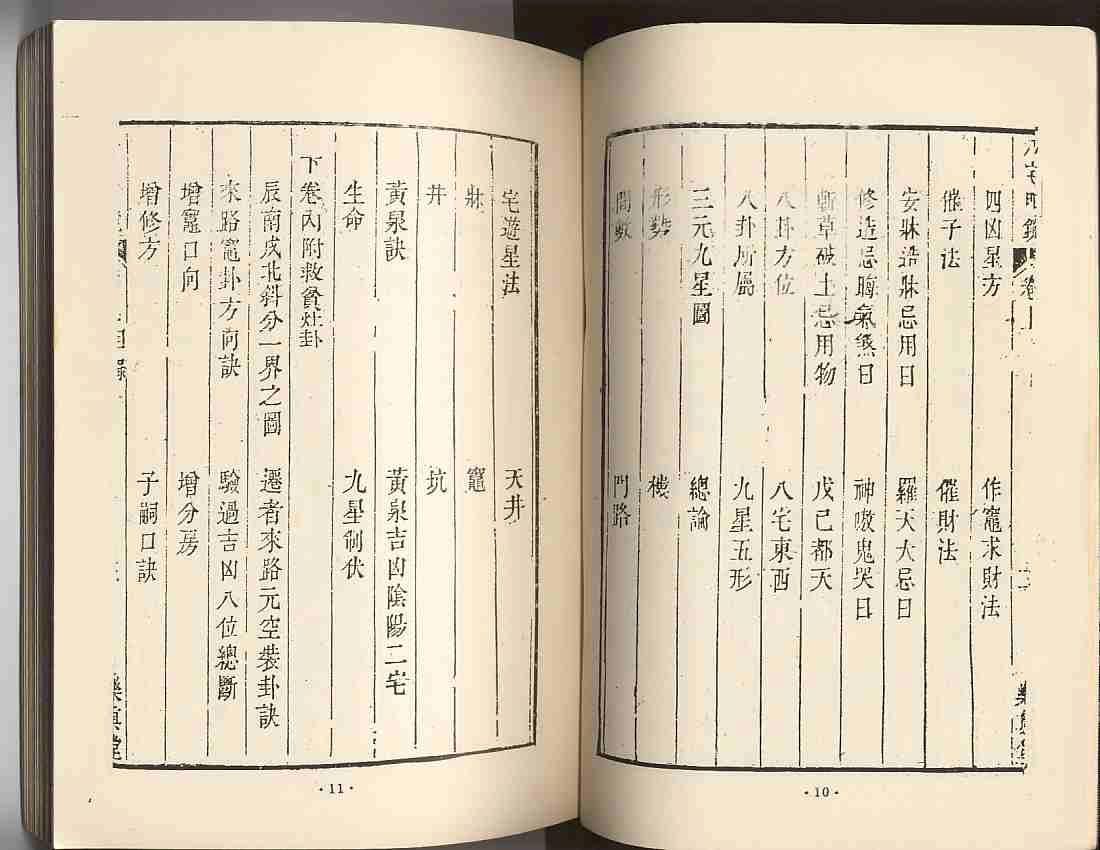 八宅明鏡 卷上
樂眞堂
四凶星方 作竈求財法
催子法 催財法
安牀造牀忌用日 羅天大忌日
修造忌晦氣煞日 神嗷鬼哭日
斬草破土忌用物 戊己都天
八卦方位 八宅東西
八卦所屬 九星五形
三元九星圖 總論
形勢 穢
間數 門路
·10·
宅遊星法 天井
牀 竈
井 坑
黃泉訣 黃泉吉凶陰陽二宅
生命 九星制伏
下卷內附救貧灶卦
辰南戌北斜分一界之圖 遷者來路元空裝卦訣
來路竈卦方向訣 驗過吉凶八位總斷
增竈口向 增分房
增修方 子嗣口訣
樂眞堂
·11·